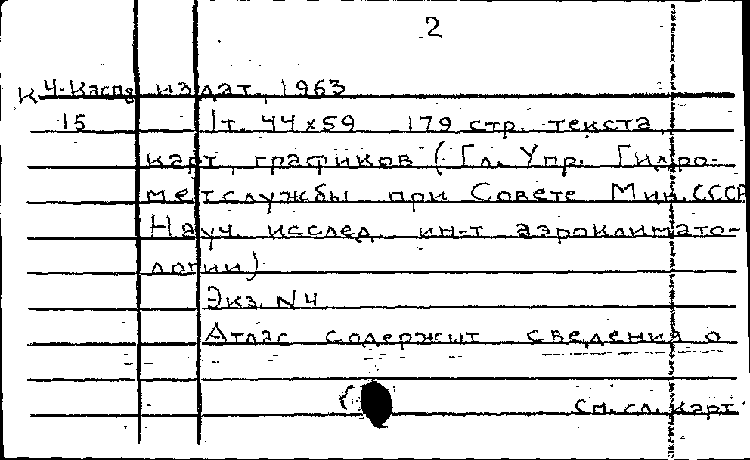 2
К 4-Касп издат., 1963
15 1т. 44х59 179 стр. текста,
карт, графиков (Гл. Упр. Гидро-
метслужбы при Совете Мин. СССР
Науч. исслед. ин-т аэроклимато-
логии)
Экз. N 4
Атлас содержит сведения о
См. сл. карт.